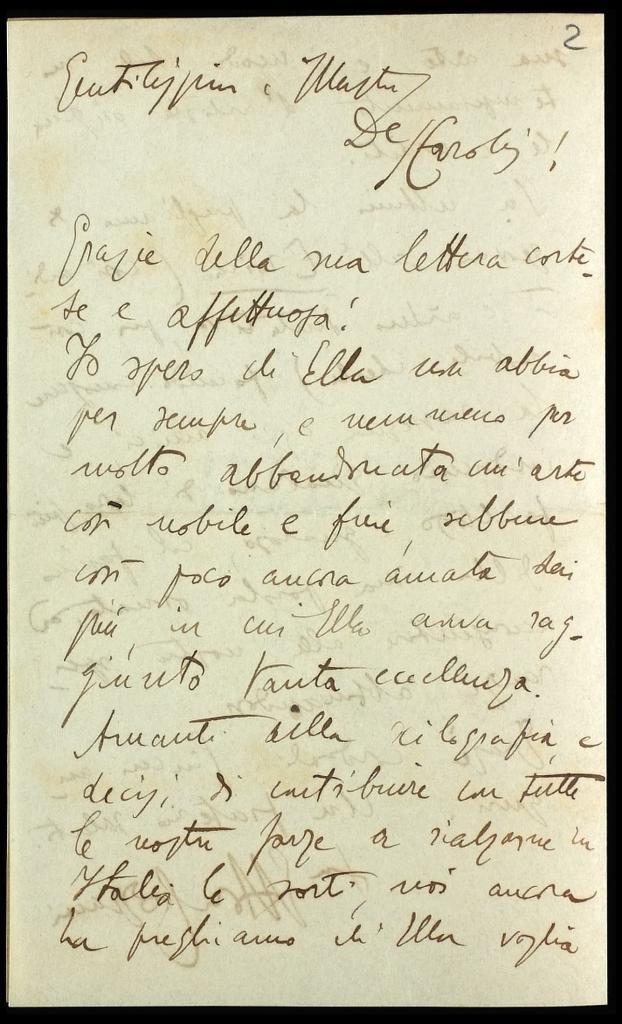 2
Gentilissimo e Illustre
De Carolis!
Grazie della sua lettera corte-
se e affettuosa!
Io spero ch'Ella non abbia
per sempre, e nemmeno per
molto abbandonata un'arte
così nobile e fine, sebbene
così poco ancora amata dai
più, in cui Ella aveva rag-
giunto tanta eccellenza.
Amanti della xilografia, e
decisi di contribuire con tutte
le nostre forze a rialzarne in
Italia le sorti, noi ancora
La preghiamo ch'Ella voglia